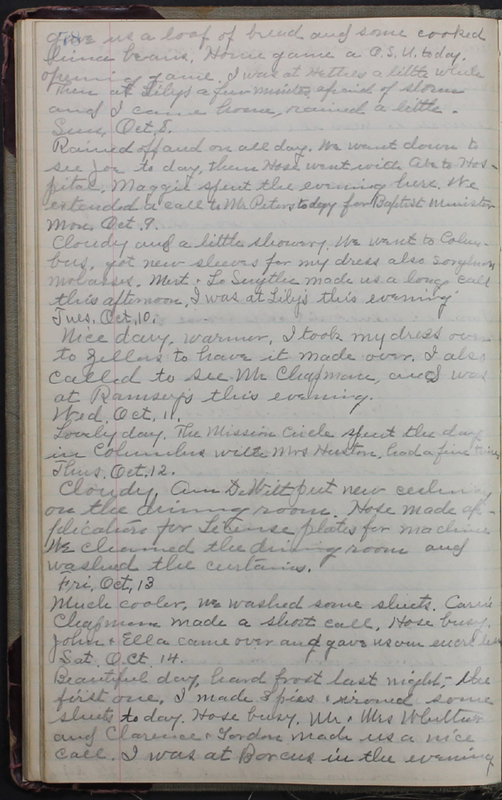 gave us a loaf of bread and some cooked
lima beans. Home game a O.S.U. today.
opening game. I was at Hetties a little while
then at Lily's a few minutes afraid of storm
and I came home, rained a little.
Sun, Oct, 8.
Rained off and on all day. We went down to
see Joe to day, then Hose went with Abe to Hos-
pital, Maggie spent the evening here. We
extended a call to Mr Peters to day for Baptist Minister
Mon. Oct. 9.
Cloudy and a little showery. We went to Colum-
bus, got new sleeves for my dress also sorghum
molasses. Mert & Lo made us a long call
this afternoon, I was at Lily's this evening
Tues. Oct, 10.
Nice day, warmer, I took my dress over
to Zellers to have it made over. I also
called to see Mr Chapman, and I was
at Ramsey's this evening.
Wed. Oct. 11.
Lovely day. The Mission Circle spent the day
in Columbus with Mrs Huston, had a fine time
Thus. Oct, 12.
Cloudy, Ann DeWitt put new ceiling
on the dining room. Hose made ap-
plications for License plates for machine
We cleaned the dining room and
washed the curtains.
Fri, Oct, 13
Much cooler, we washed some sheets. Carrie
Chapman made a short call, Hose busy.
John & Ella came over and gave us our
Sat. Oct. 14.
Beautiful day, heard frost last night, the
first one, I made 3 pies & ironed some
sheets to day. Hose busy. Mr & Mrs
and Clarence & Gordon made us a nice
call. I was at Borcus in the evening